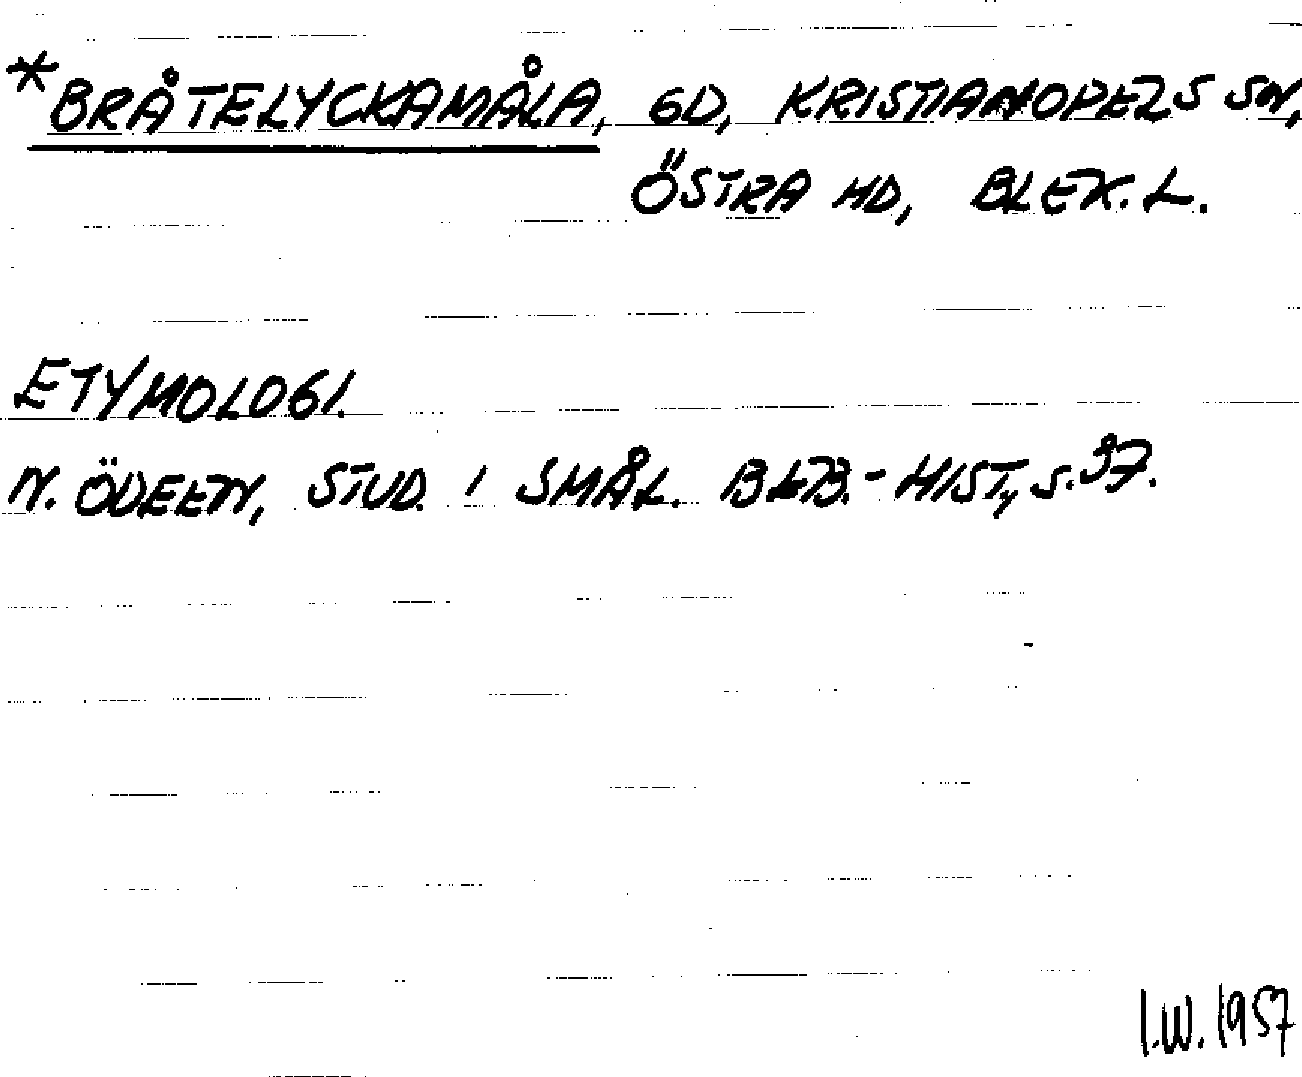 *BRÅTELYCKAMÅLA, GD, KRISTIANOPELS SN,
ÖSTRA HD, BLEK. L.
ETYMOLOGI.
N. ÖDEEN, STUD. I SMÅL. BEB.-HIST., S. 97.
I.W. 1957